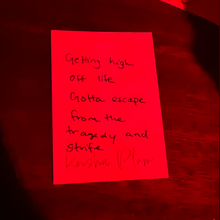 Getting high
off life
Gotta escape
from the
tragedy and
strife